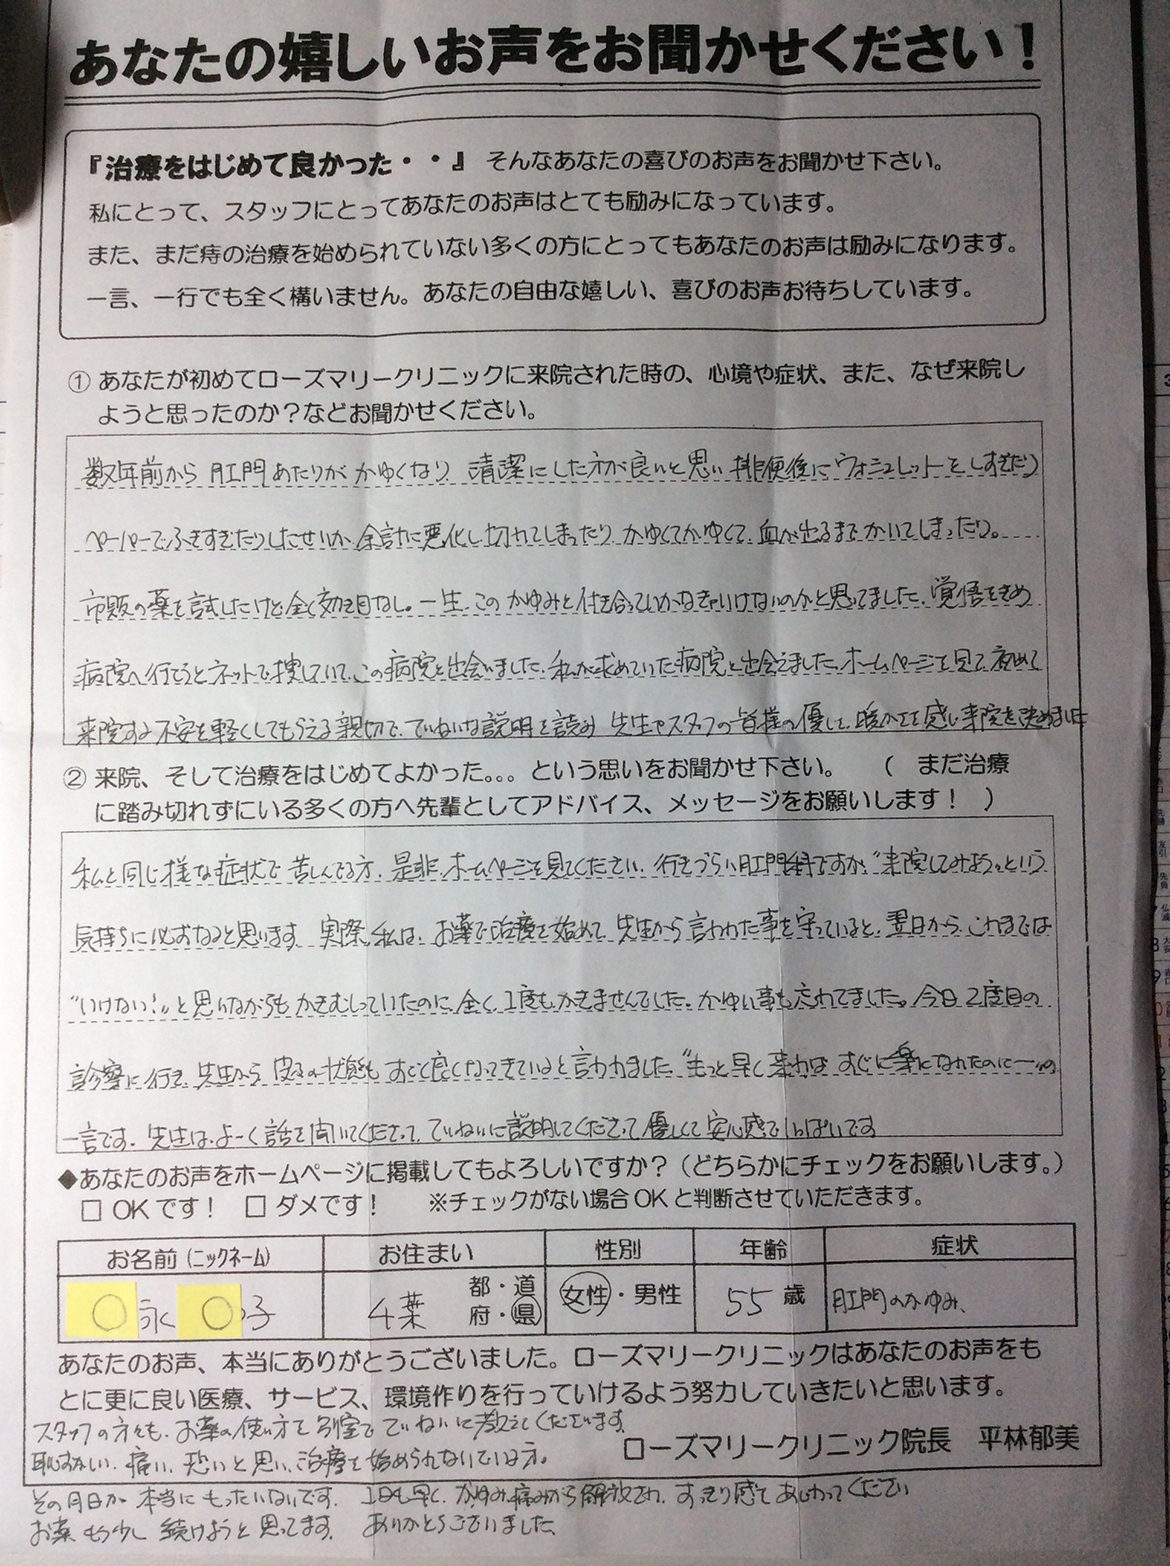 あなたの嬉しいお声をお聞かせください！
『治療をはじめて良かった・・』 そんなあなたの喜びのお声をお聞かせ下さい。
私にとって、スタッフにとってあなたのお声はとても励みになっています。
また、まだ痔の治療を始められていない多くの方にとってもあなたのお声は励みになります。
一言、一行でも全く構いません。あなたの自由な嬉しい、喜びのお声お待ちしています。
① あなたが初めてローズマリークリニックに来院された時の、心境や症状、また、なぜ来院し
ようと思ったのか？などお聞かせください。
数年前から 肛門あたりが かゆくなり 清潔にした方が良いと思い 排便後に ウォシュレットをしすぎたり
ペーパーでふきすぎたりしたせいか、余計に悪化し切れてしまったり かゆくてかゆくて、血が出るまでかいてしまったり。
市販の薬を試したけど全く効き目なし。一生、このかゆみと付き合っていかなきゃいけないのかと思ってました。覚悟をきめ
病院へ行こうとネットで捜していて、この病院と出会いました。私が求めていた病院と出会えました。ホームページを見て、初めて
来院する不安を軽くしてもらえる親切で、ていねいな説明を読み 先生やスタッフの皆様の優しさ、暖かさを感じ来院を決めました
② 来院、そして治療をはじめてよかった。。。という思いをお聞かせ下さい。 （ まだ治療
に踏み切れずにいる多くの方へ先輩としてアドバイス、メッセージをお願いします！ ）
私と同じ様な症状で苦しんでる方、是非、ホームページを見てください。行きづらい肛門科ですが、"来院してみよう"という
気持ちに必ずなると思います。実際、私は、お薬で治療を始めて、先生から言われた事を守っていると、翌日から、これまでは
"いけない！"と思いながらも かきむしっていたのに、全く、1度も、かきませんでした。かゆい事も忘れてました。今日、2度目の
診察に行き、先生から 皮フの状態も すごく良くなってきていると言われました "もっと早く 来れば すぐに楽になれたのに一"の
一言です。先生は、よーく話を聞いてくださって、ていねいに説明してくださって 優しくて 安心感で いっぱいです
◆あなたのお声をホームページに掲載してもよろしいですか？（どちらかにチェックをお願いします。）
□ OKです！ □ ダメです！ ※チェックがない場合OKと判断させていただきます。
お名前（ニックネーム） お住まい 性別 年齢 症状
○永○子 千葉 都・道府・県 女性・男性 55歳 肛門のかゆみ、
あなたのお声、本当にありがとうございました。ローズマリークリニックはあなたのお声をも
とに更に良い医療、サービス、環境作りを行っていけるよう努力していきたいと思います。
スタッフの方々も、お薬の使い方を別室で ていねいに教えてくださいます。
ローズマリークリニック院長 平林郁美
恥ずかしい、痛い、恐いと思い、治療を始められないでいる方。
その月日が 本当に もったいないです。 1日も早く、かゆみ、痛みから解放され、すっきり感を あじわってください
お薬 もう少し 続けようと 思ってます。 ありがとうございました。